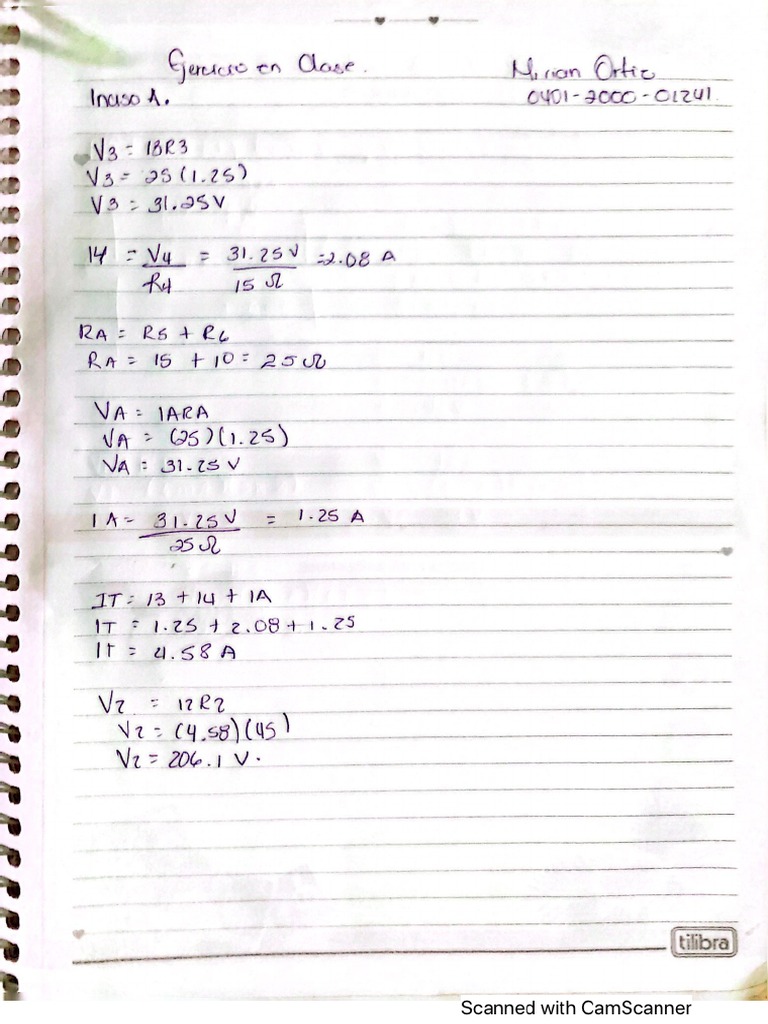 Ejercicio en Clase.
Mirian Ortiz
Inciso A.
0401-2000-01241.
V3 = I3R3
V3 = 25(1.25)
V3 = 31.25V
I4 = V4/R4 = 31.25 V/15 Ω = 2.08 A
RA = R5 + R6
RA = 15 + 10 = 25Ω
VA = IARA
VA = (25)(1.25)
VA = 31.25 V
IA = 31.25 V/25Ω = 1.25 A
IT = I3 + I4 + IA
IT = 1.25 + 2.08 + 1.25
IT = 4.58 A
V2 = I2R2
V2 = (4.58)(45)
V2 = 206.1 V.
tilibra
Scanned with CamScanner